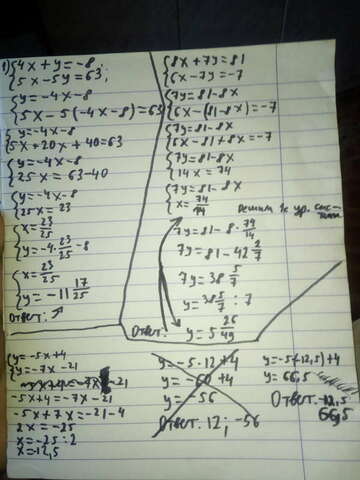 1) {4x + y = -8;
{5x - 5y = 63;
{y = -4x - 8
{5x - 5(-4x - 8) = 63
{y = -4x - 8
{5x + 20x + 40 = 63
{y = -4x - 8
{25x = 63 - 40
{y = -4x - 8
{25x = 23
{x = 23/25
{y = -4 · 23/25 - 8
{x = 23/25
{y = -11 17/25
Ответ: ↗
{8x + 7y = 81
{6x - 7y = -7
{7y = 81 - 8x
{6x - (81 - 8x) = -7
{7y = 81 - 8x
{6x - 81 + 8x = -7
{7y = 81 - 8x
{14x = 74
{7y = 81 - 8x
{x = 74/14
Решим 1е ур. сис-темы
7y = 81 - 8 · 74/14
7y = 81 - 42 2/7
7y = 38 5/7
y = 38 5/7 : 7
Ответ: y = 5 26/49
{y = -5x + 4
{y = -7x - 21
-5x + 4 = -7x - 21
-5x + 7x = -21 - 4
2x = -25
x = -25 : 2
x = -12,5
y = -5 · 12 + 4
y = -60 + 4
y = -56
Ответ. 12; -56
y = -5(-12,5) + 4
y = 66,5
Ответ. -12,5
66,5